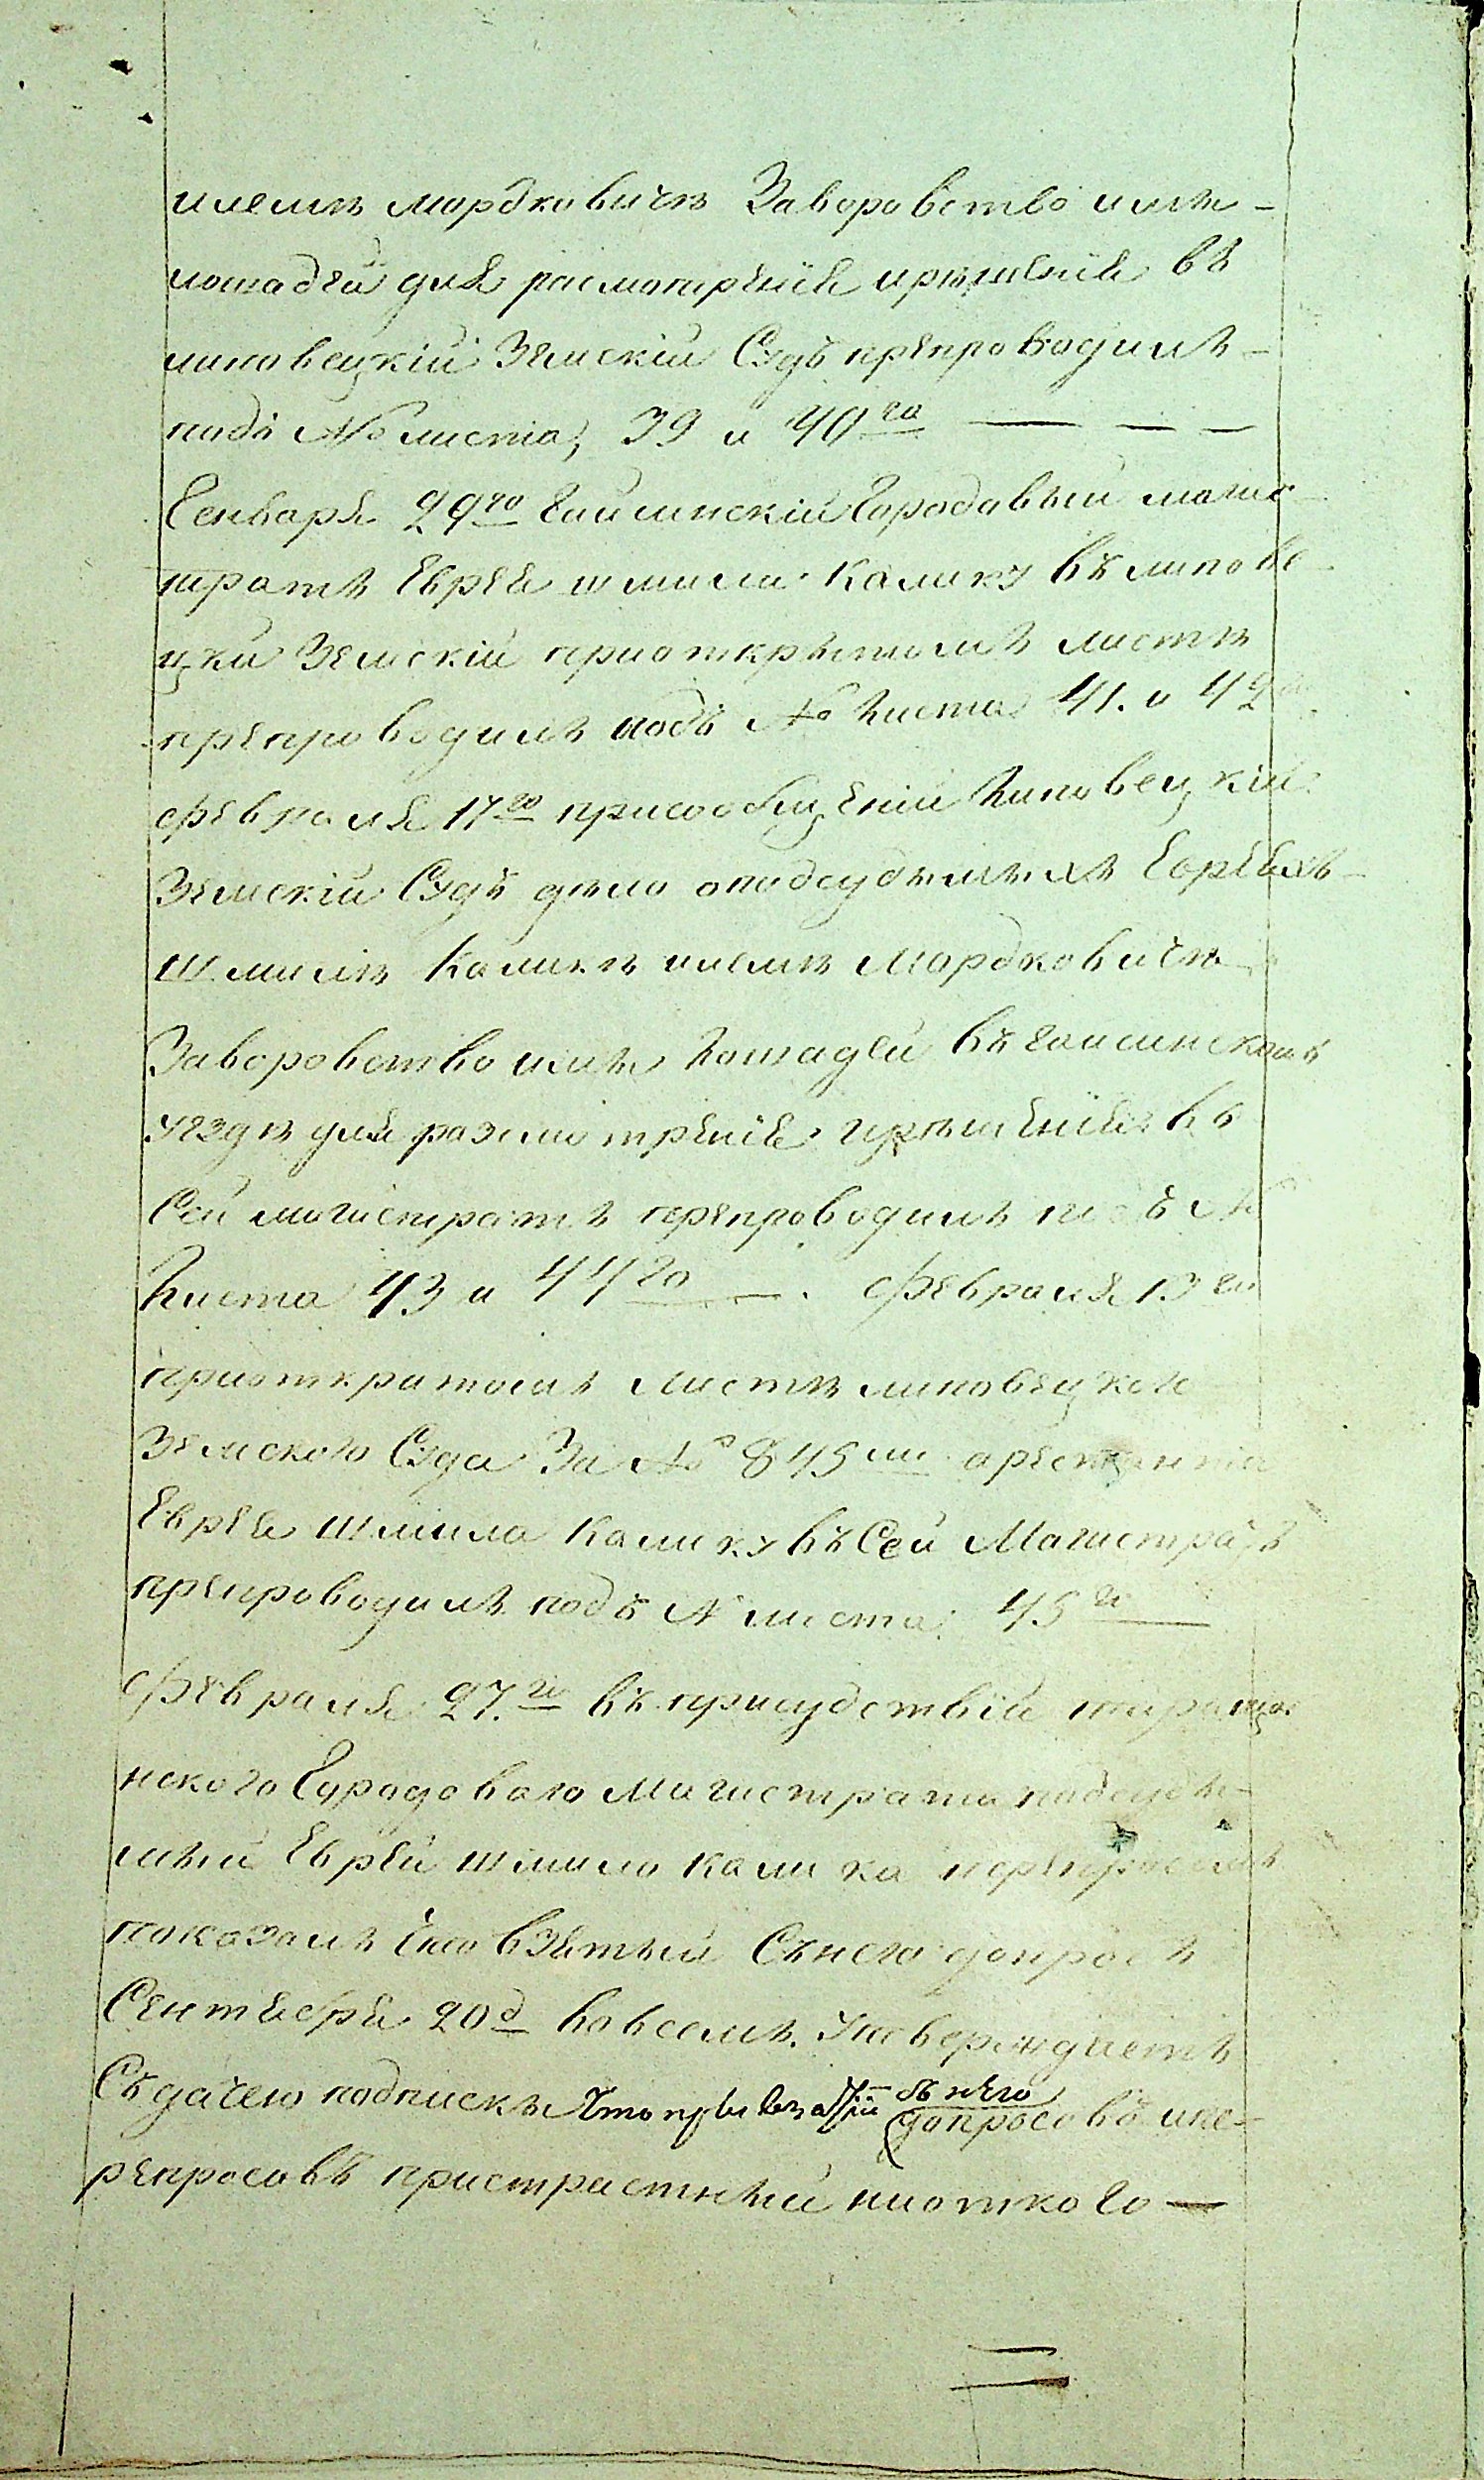 илемъ мордковичъ Заворовство имъ-
лошадей для расмотреніе ирѣшеніе въ
липовецкій Земскій Судъ препроводилъ-
подъ № листа, 39 и 40го — — —
Генваря 29го Гайсинскій Городовый магис-
тратъ Еврея шмили Калику въ липове-
цки Земскій приоткрытомъ листѣ
препроводилъ подъ № Листа 41. и 42го
февраля 17го присообщеніи Липовецкій
Земскій Судъ дѣло оподсудымыхъ Евреяхъ-
шмилѣ Каликѣ илемѣ Мордковичѣ
Заворовство имъ Лошадей въ гаисинскомъ
уездѣ для размотреніе ирѣшеніе въ
Сей магистратъ препроводилъ подъ №
Листа 43 и 44го —. февраля 13го
приоткратомъ листѣ липовецкого
Земского Суда За № 845мъ арестанта
Еврея шмила Калику въ Сей Магистратъ
препроводилъ подъ № листа 45го —
февраля 27.го въ присудствіи тараща-
нского Городоваго Магистрата подсуды-
мый Еврей шмило калика
показалъ что взятый Сънего допросъ
Сентября 20д вовсемъ утверждаетъ
Съдачею подпискы Что при съ него
допросовъ ипе-
репросовъ пристрастный ниоткого —